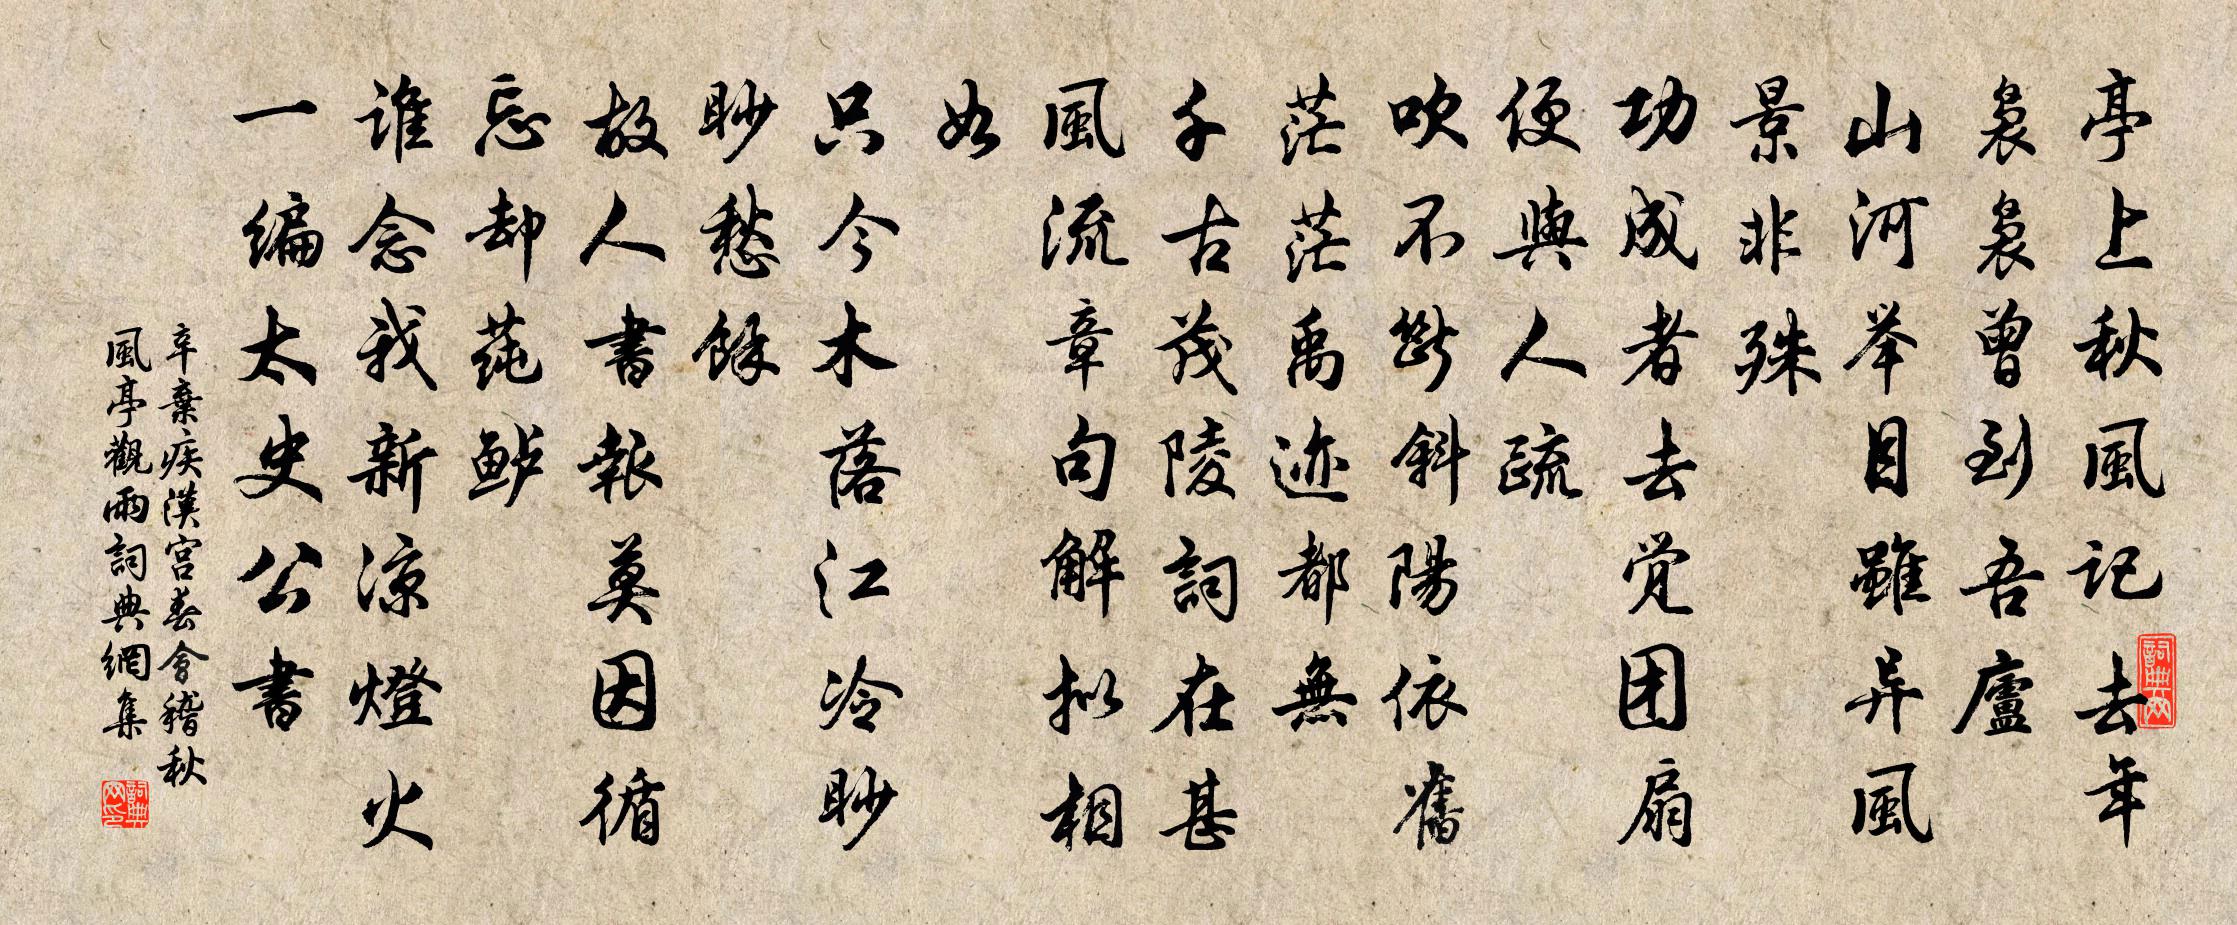 亭上秋風記去年
袅袅曾到吾廬
山河举目雖异風
景非殊
功成者去觉团扇
便與人疏
吹不斷斜陽依舊
茫茫禹迹都無
千古茂陵詞在甚
風流章句解拟相
如
只今木落江冷眇
眇愁餘
故人書報莫因循
忘却莼鲈
谁念我新凉燈火
一编太史公書
辛棄疾漢宫春會稽秋
風亭觀雨詞典網集
詞典网
詞典网印